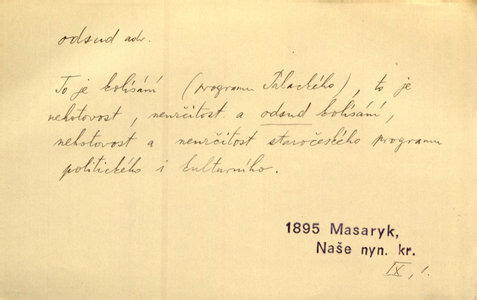 odsud adv.
To je kolísání (programu Palackého), to je
nehotovost, neurčitost a odsud kolísání,
nehotovost a neurčitost staročeského programu
politického i kulturního.
1895 Masaryk,
Naše nyn. kr.
IX, 1.